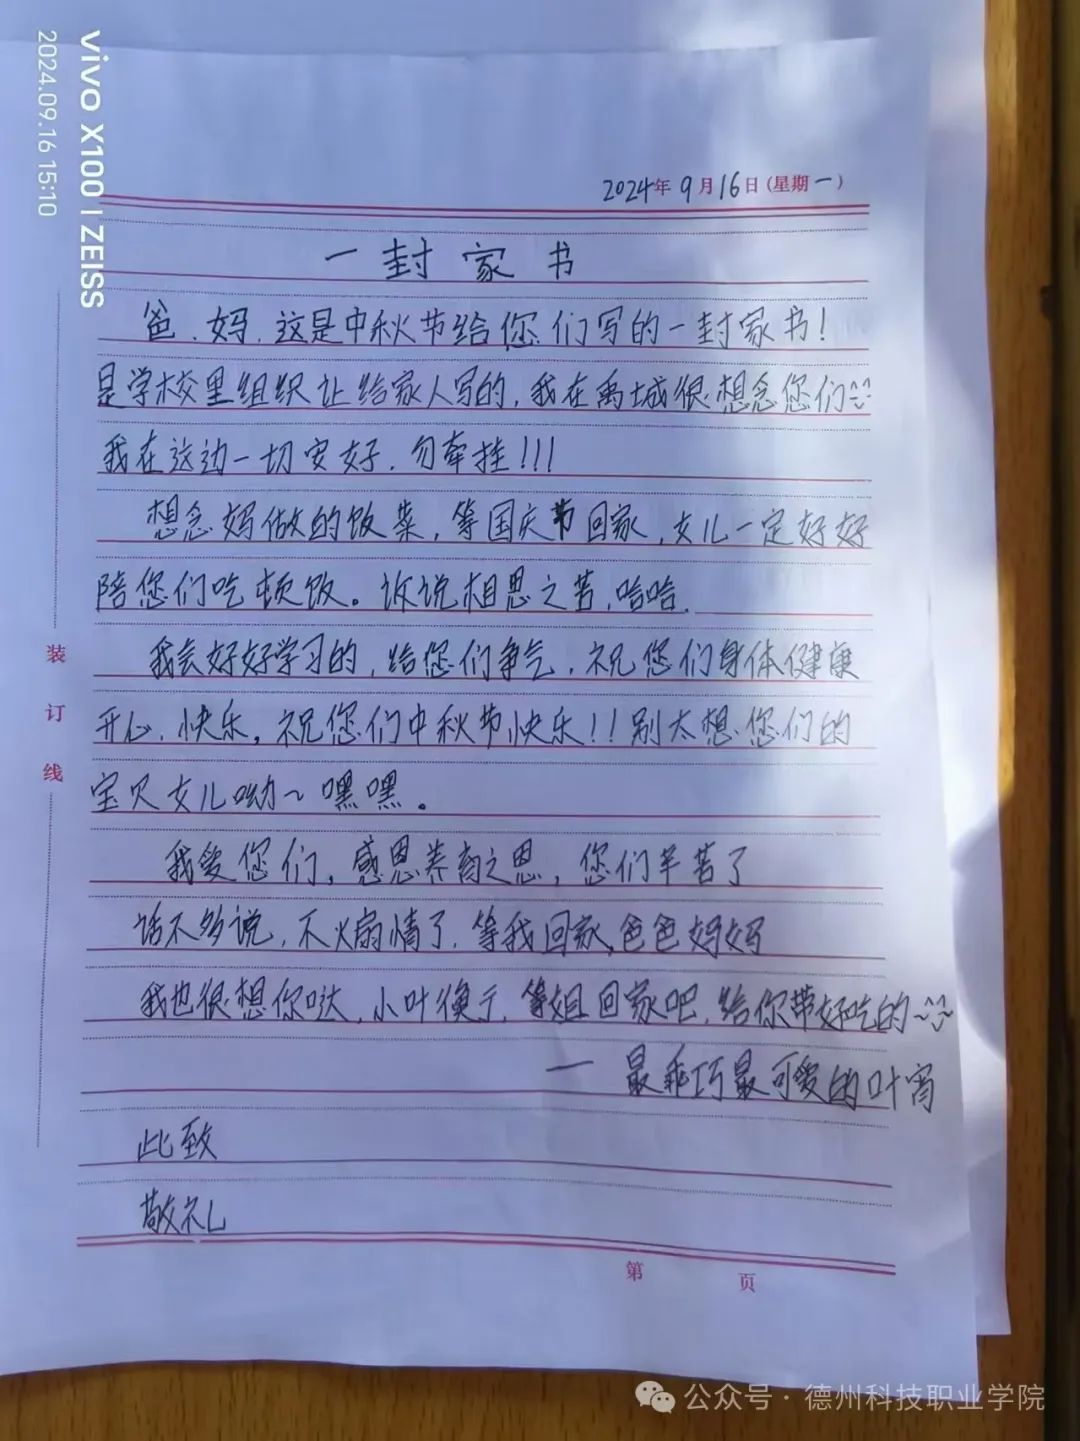 vivo X100 | ZEISS
2024.09.16 15:10
2024年9月16日(星期一)
一封家书
爸、妈、这是中秋节给您们写的一封家书!
是学校里组织让给家人写的,我在禹城很想念您们
我在这边一切安好,勿牵挂!!!
想念妈做的饭菜,等国庆节回家,女儿一定好好
陪您们吃顿饭。诉说相思之苦,哈哈.
我会好好学习的,给您们争气,祝您们身体健康
开心、快乐,祝您们中秋节快乐!!别太想您们的
宝贝女儿呦~嘿嘿。
我爱您们,感恩养育之恩,您们辛苦了
话不多说,不火扇情了,等我回家,爸爸妈妈
我也很想你哒,小叶 等姐回家吧,给你带好吃的~
— 最乖巧最可爱的叶宵
此致
敬礼
装
订
线
第 页
公众号·德州科技职业学院